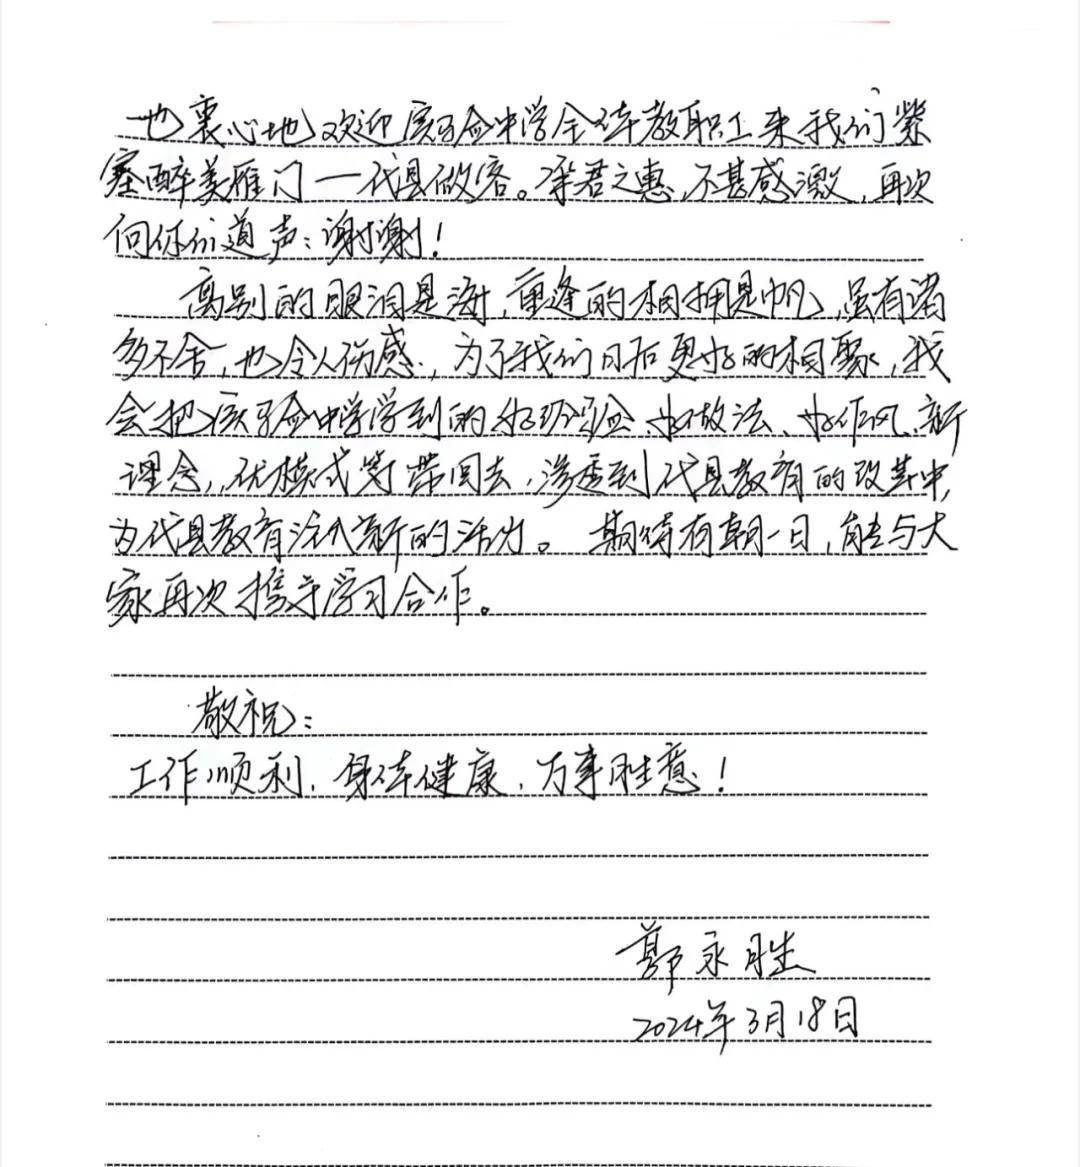 也衷心地欢迎实验中学全体教职工来我们紫
塞醉美雁门一代县做客。承君之惠,不甚感激,再次
向你们道声:谢谢!
离别的眼泪是海,重逢的相拥是帆,虽有诸
多不舍,也令人伤感,为了我们日后更好的相聚,我
会把实验中学学到的好经验、好做法、好作风、新
理念,优模式等带回去,渗透到代县教育的改革中,
为代县教育注入新的活力。期待有朝一日,能与大
家再次携手学习合作。
敬祝:
工作顺利,身体健康,万事胜意!
郭永胜
2024年3月18日